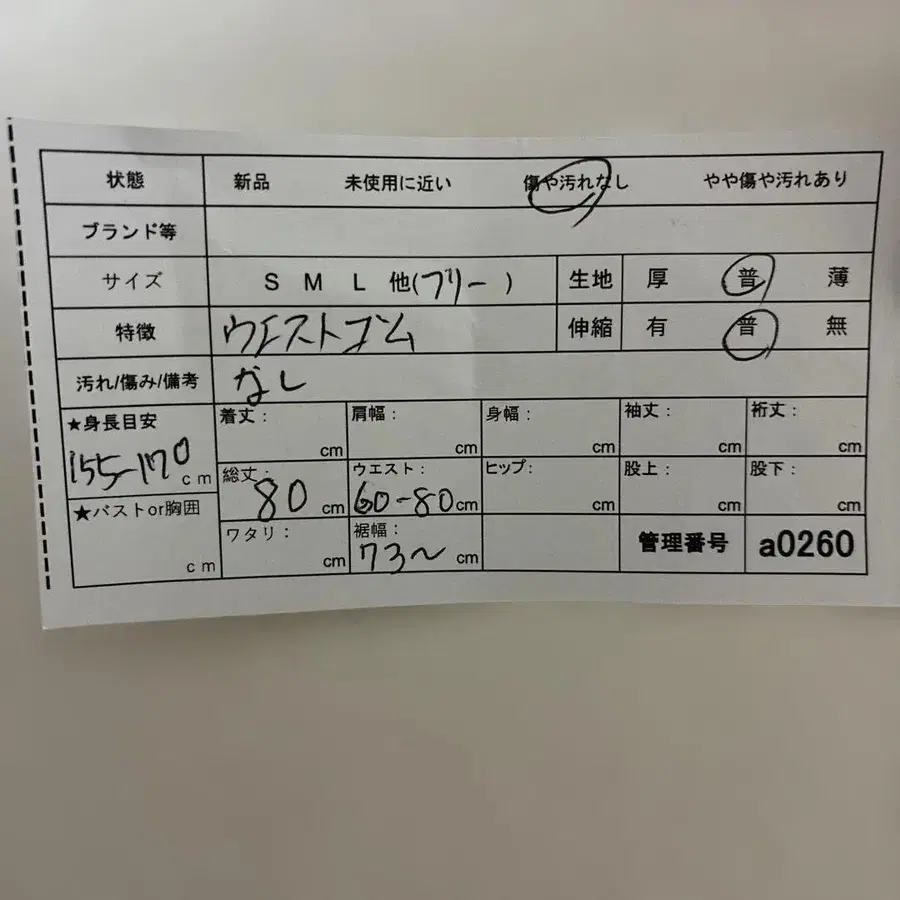 状態 新品 未使用に近い 傷や汚れなし やや傷や汚れあり
ブランド等
サイズ S M L 他(フリー) 生地 厚 普 薄
特徴 ウエストゴム 伸縮 有 普 無
汚れ/傷み/備考 なし
★身長目安 155-170 cm
着丈: cm 肩幅: cm 身幅: cm 袖丈: cm 裄丈: cm
総丈: 80 cm ウエスト: 60-80cm ヒップ: cm 股上: cm 股下: cm
★バストor胸囲 cm
ワタリ: cm 裾幅: 73〜 cm 管理番号 a0260